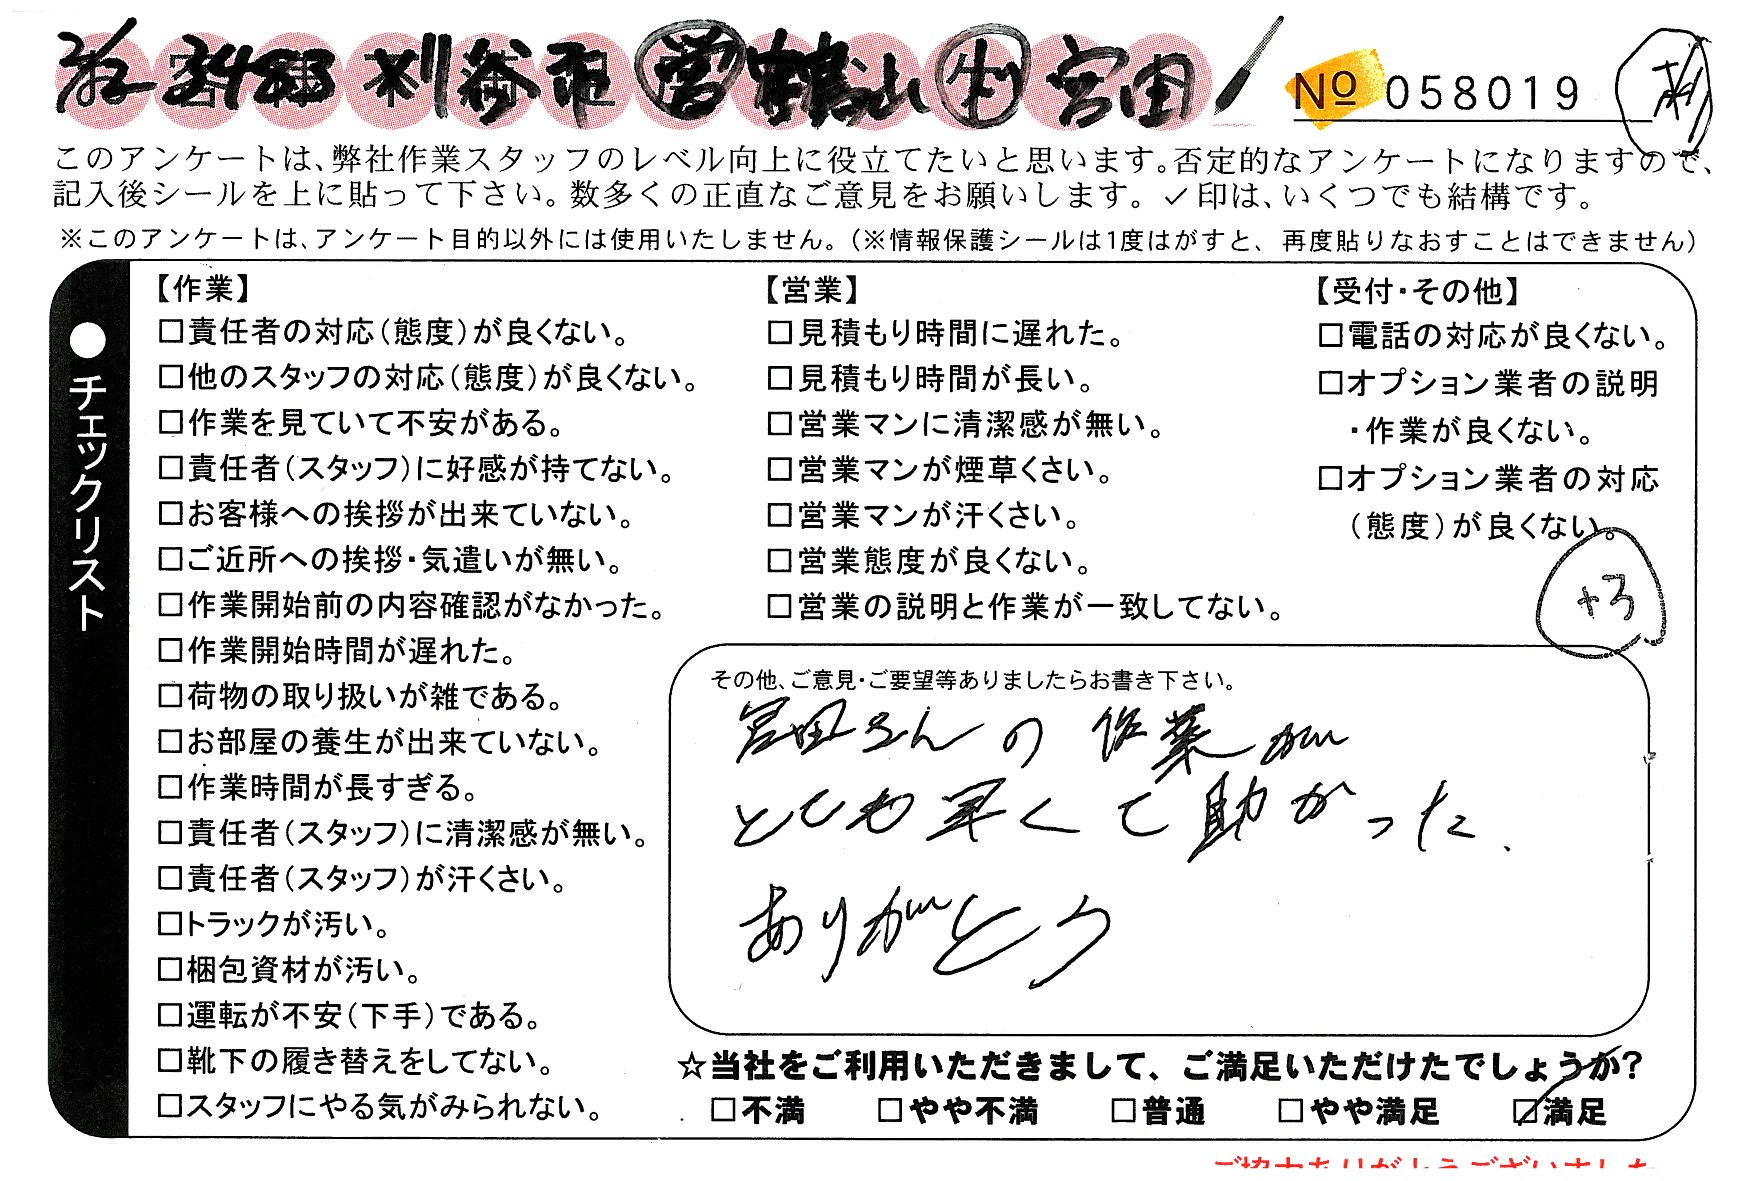 2/2 3483 刈谷市 営 鶴山 刈 宮田
№ 058019
このアンケートは、弊社作業スタッフのレベル向上に役立てたいと思います。否定的なアンケートになりますので、
記入後シールを上に貼って下さい。数多くの正直なご意見をお願いします。✓印は、いくつでも結構です。
※このアンケートは、アンケート目的以外には使用いたしません。(※情報保護シールは1度はがすと、再度貼りなおすことはできません)
●チェックリスト
【作業】
□責任者の対応(態度)が良くない。
□他のスタッフの対応(態度)が良くない。
□作業を見ていて不安がある。
□責任者(スタッフ)に好感が持てない。
□お客様への挨拶が出来ていない。
□ご近所への挨拶・気遣いが無い。
□作業開始前の内容確認がなかった。
□作業開始時間が遅れた。
□荷物の取り扱いが雑である。
□お部屋の養生が出来ていない。
□作業時間が長すぎる。
□責任者(スタッフ)に清潔感が無い。
□責任者(スタッフ)が汗くさい。
□トラックが汚い。
□梱包資材が汚い。
□運転が不安(下手)である。
□靴下の履き替えをしてない。
□スタッフにやる気がみられない。
【営業】
□見積もり時間に遅れた。
□見積もり時間が長い。
□営業マンに清潔感が無い。
□営業マンが煙草くさい。
□営業マンが汗くさい。
□営業態度が良くない。
□営業の説明と作業が一致してない。
【受付・その他】
□電話の対応が良くない。
□オプション業者の説明
・作業が良くない。
□オプション業者の対応
(態度)が良くない。
+3
その他、ご意見・ご要望等ありましたらお書き下さい。
宮田さんの作業が
とても早くて助かった.
ありがとう
☆当社をご利用いただきまして、ご満足いただけたでしょうか?
□不満 □やや不満 □普通 □やや満足 ☑満足
ご協力ありがとうございました